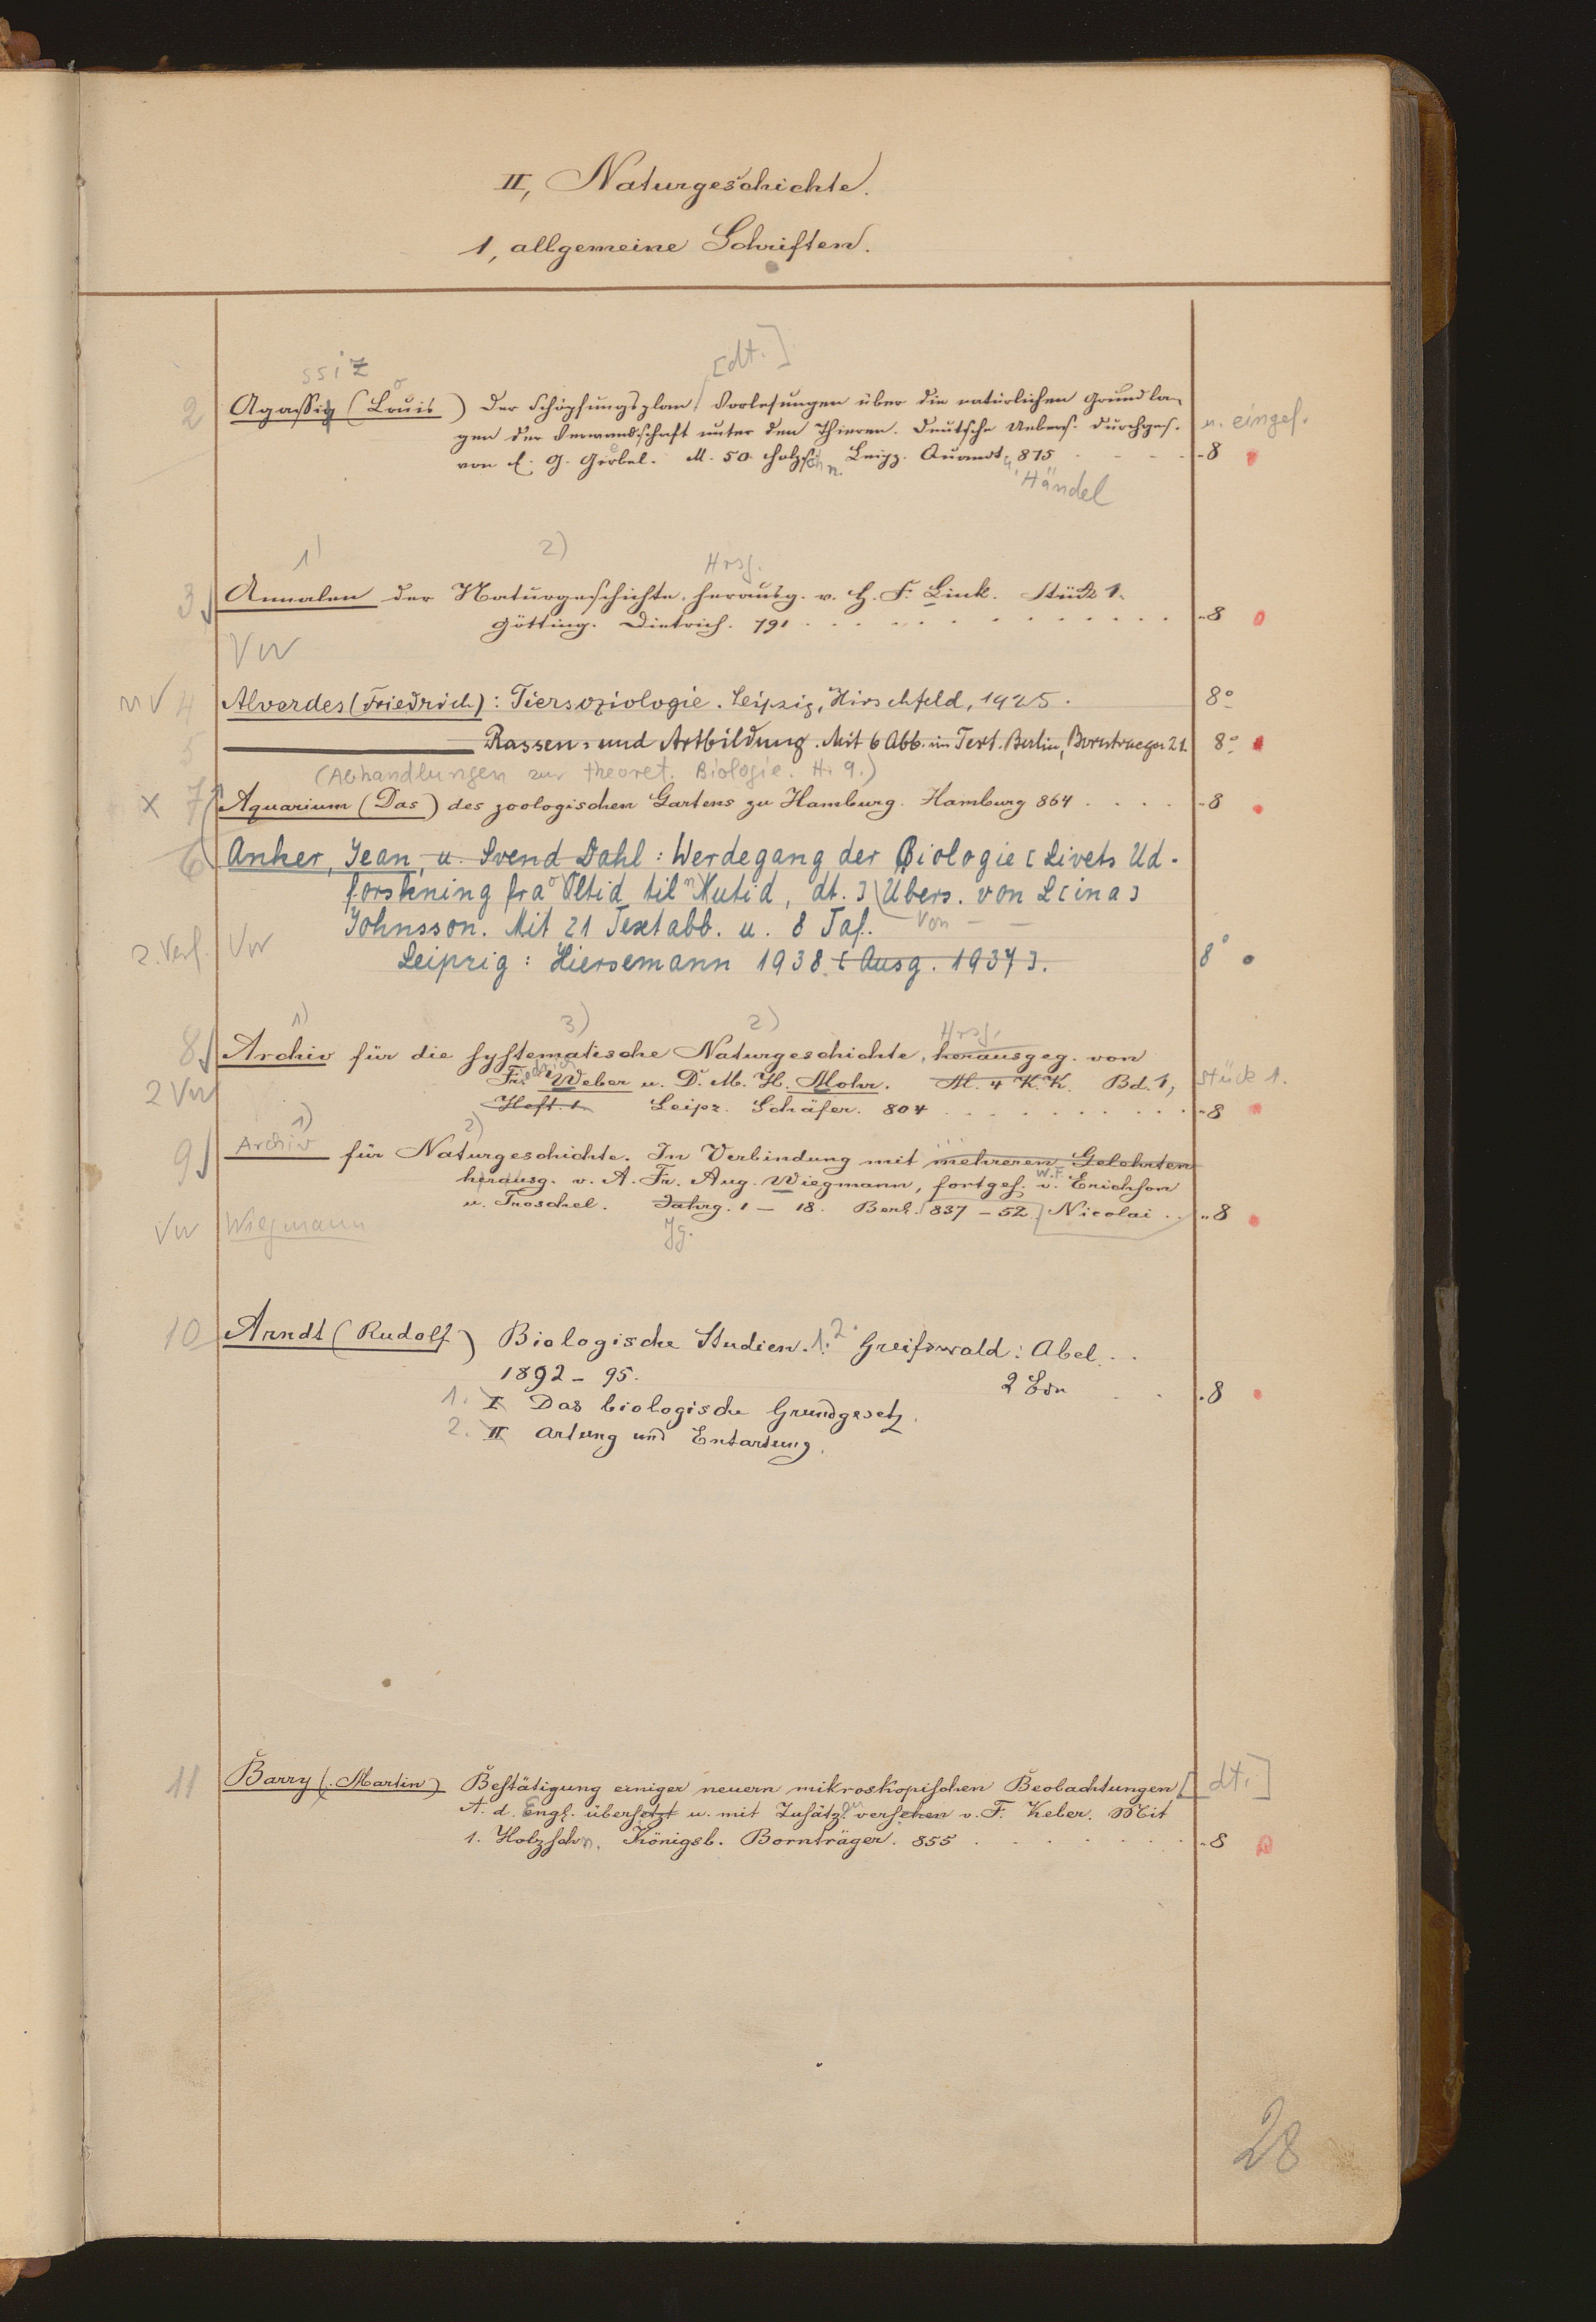 II, Naturgeschichte.
1, allgemeine Schriften.
ssiz [dt.]
2 Agassiz (Louis) Der Schöpfungsplan Vorlesungen über die natürlichen Grundla-
gen der Verwandschaft unter den Thieren. Deutsche Uebers. durchges. u. eingef.
von C. G. Giebel. M. 50 Holzschn. Leipz. Quandt u. 875 8
Händel
1) 2) Hrsg.
3 Annalen der Naturgeschichte, herausg. v. H. F. Link. Stück 1.
Götting. Dietrich. 791 8
Vw
4 Alverdes (Friedrich): Tiersoziologie. Leipzig, Hirschfeld, 1925. 8°
5 Rassen- und Artbildung. Mit 6 Abb. im Text. Berlin, Borntraeger 21. 8°
(Abhandlungen zur theoret. Biologie. H. 9.)
x 7 Aquarium (Das) des zoologischen Gartens zu Hamburg. Hamburg 864 8
6 Anker, Jean, u. Svend Dahl: Werdegang der Biologie [Livets Ud-
forskning fra Oltid til Nutid, dt.] Übers. von L[ina]
Johnsson. Mit 21 Textabb. u. 8 Taf. Von
2. Verf. Vw Leipzig: Hiersemann 1938. [Ausg. 1937]. 8°
1) 3) 2) Hrsg.
8 Archiv für die systematische Naturgeschichte, herausgeg. von
Friedrich Weber u. D. M. H. Mohr. M. 4 K.K. Bd. 1, Stück 1.
2 Vw Heft. 1. Leipz. Schäfer. 804 8
1) 2)
9 Archiv für Naturgeschichte. In Verbindung mit mehreren Gelehrten
herausg. v. A. Fr. Aug. Wiegmann, fortges. v. W.F. Erichson
u. Troschel. Jahrg. 1 – 18. Berl. 837 – 52. Nicolai 8
Vw Wiegmann Jg.
10 Arndt (Rudolf) Biologische Studien. 1. 2. Greifswald: Abel
1892 – 95. 2 Bde 8
1. I Das biologische Grundgesetz.
2. II Artung und Entartung.
11 Barry (Martin) Bestätigung einiger neuern mikroskopischen Beobachtungen [dt.]
A. d. Engl. übersetzt u. mit Zusätzen versehen v. F. Keber. Mit
1. Holzschn. Königsb. Bornträger. 855 8
28